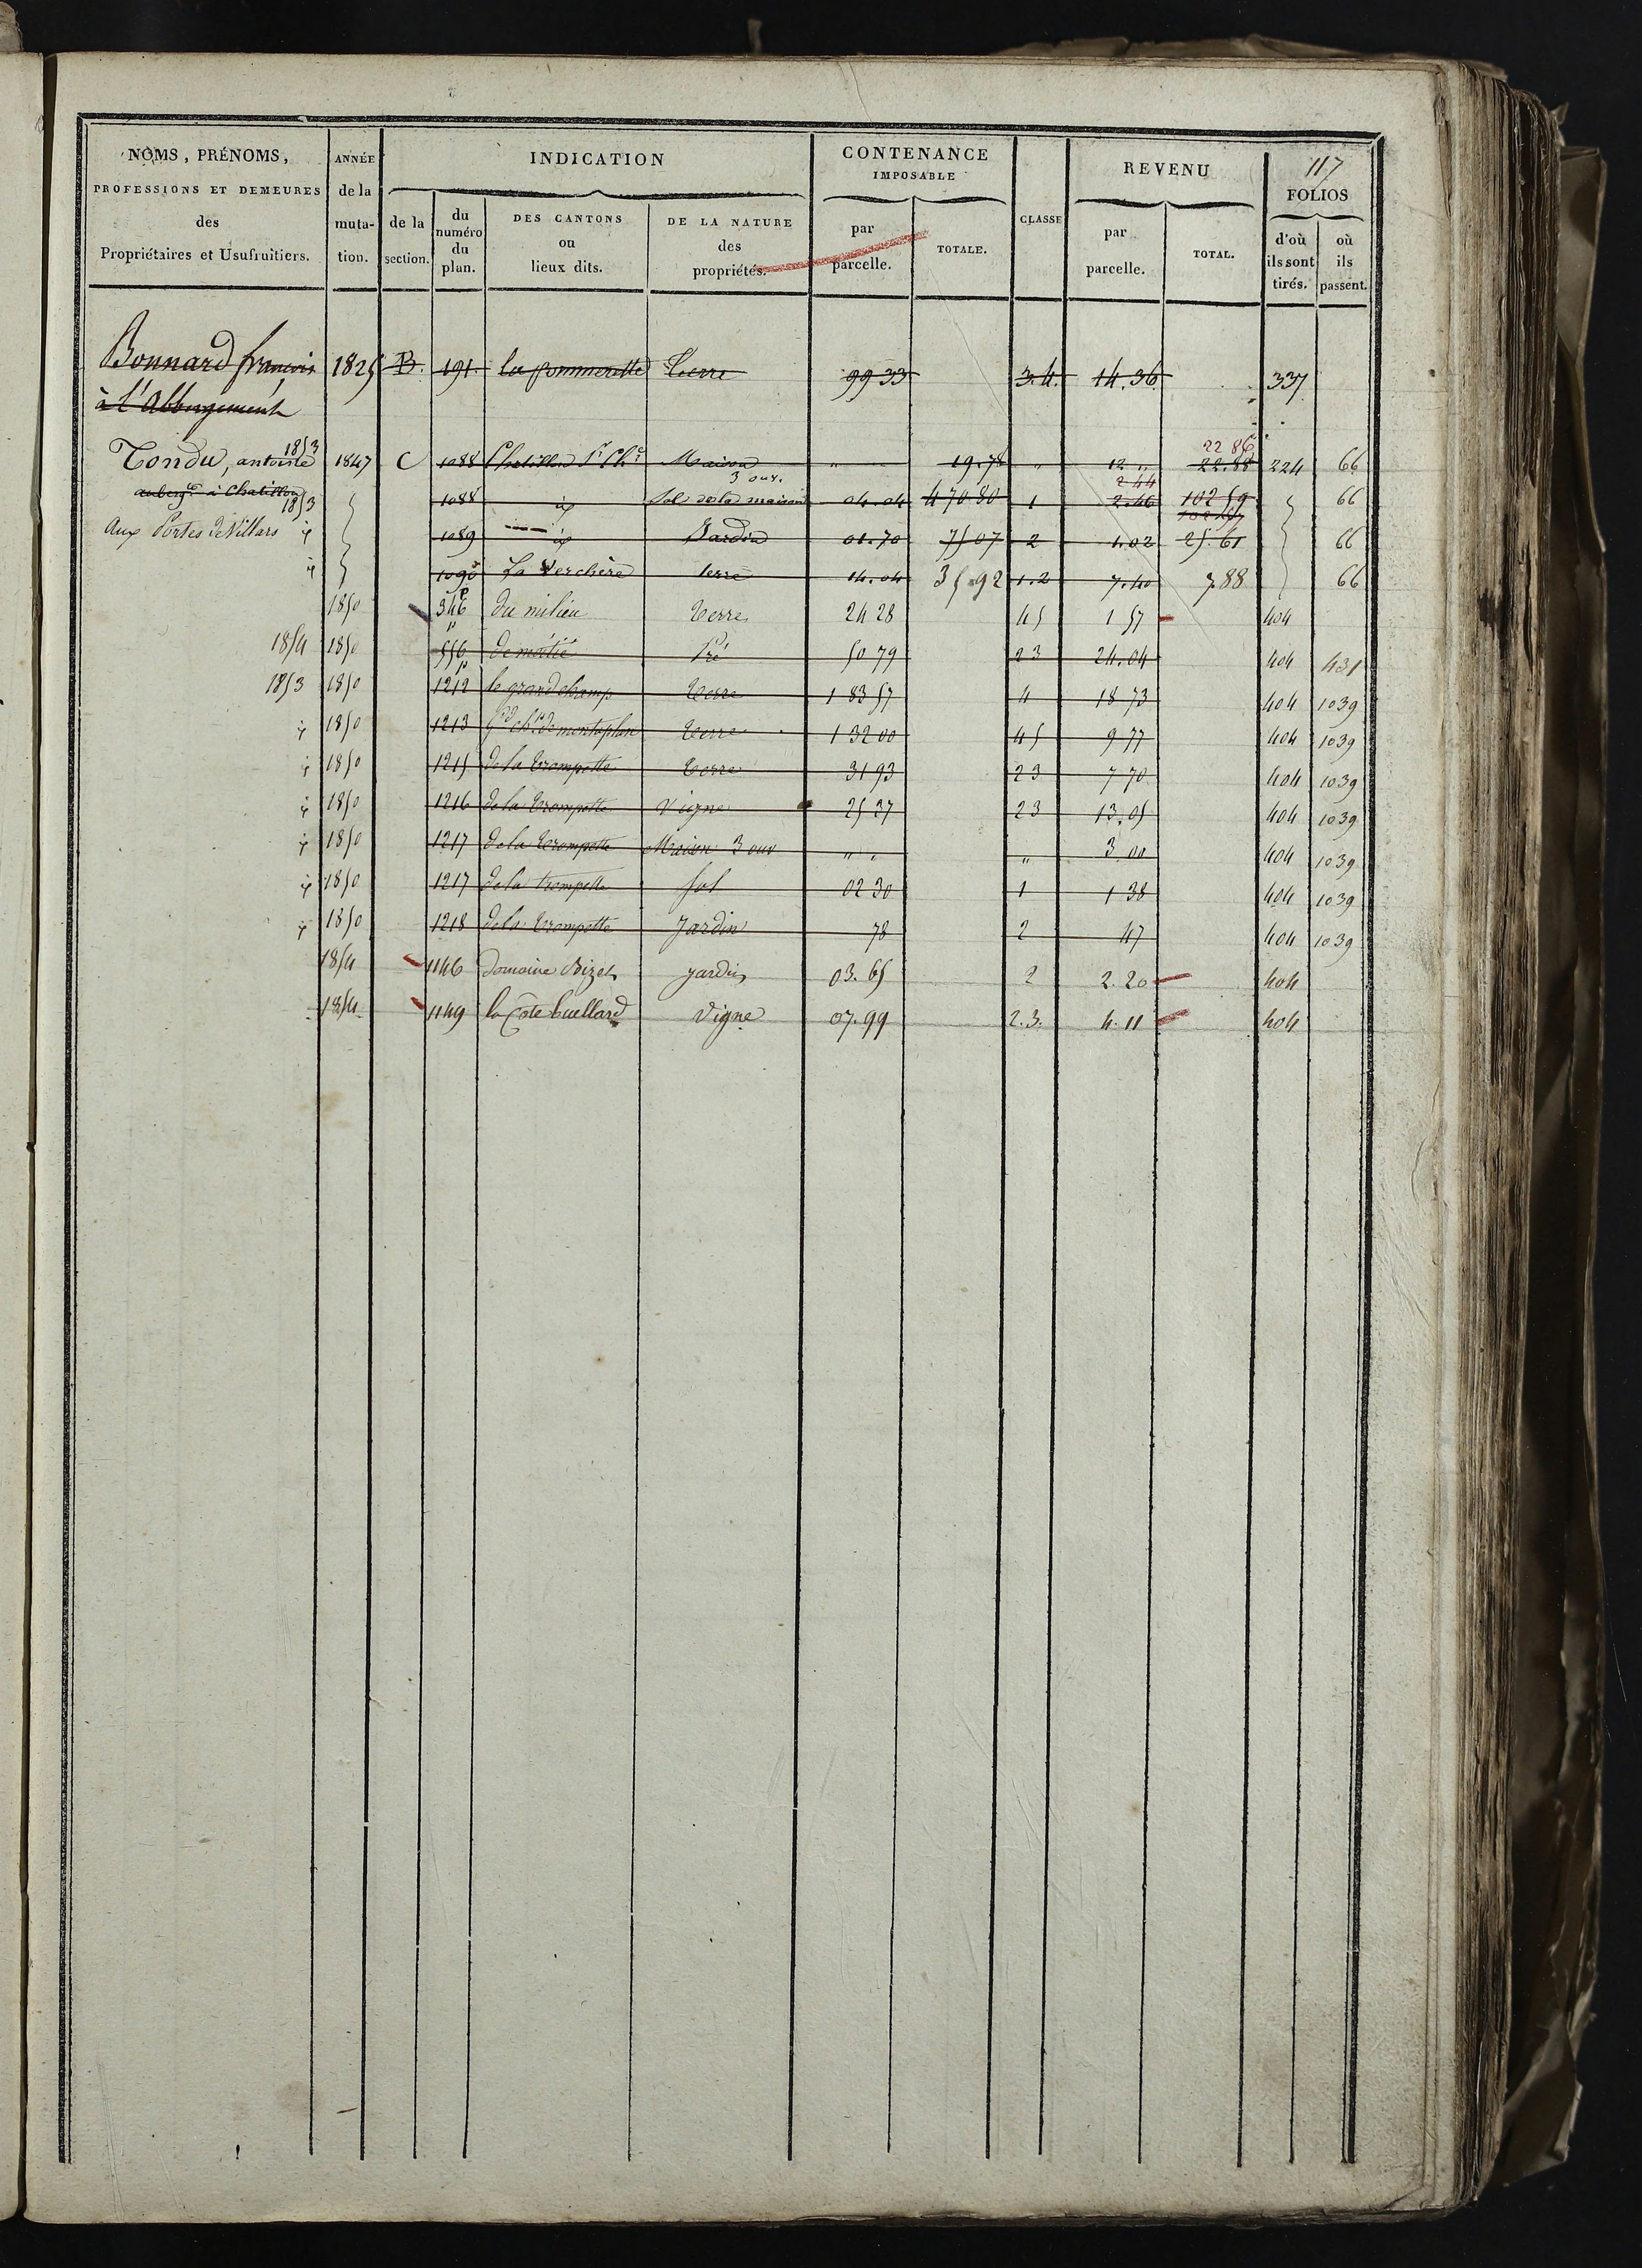 117
NOMS, PRÉNOMS, PROFESSIONS ET DEMEURES des Propriétaires et Usufruitiers.
ANNÉE de la mutation.
INDICATION
de la section.
du numéro du plan.
DES CANTONS ou lieux dits.
DE LA NATURE des propriétés.
CONTENANCE IMPOSABLE
par parcelle.
TOTALE.
CLASSE
REVENU
par parcelle.
TOTAL.
FOLIOS
d'où ils sont tirés.
où ils passent.
Bonnard françois 1825 B. 191. la pommerette Terre 99 33 3.4. 14.36. 337
à l'Abbergement
Tondu, antoine 1853 1847 C 1088 Chatillon St Ch. Maison 3 ouv. " 19.78 " 12 " 22.88 22 86 224 66
auberg. à Chatillon 1853 1088 id Sol de la maison 04.04 4 70 80 1 2.46 2 44 102 59 66
Aux Portes de Villars id 1089 id Jardin 01.70 75 07 2 1.02 25.61 66
id 1090 La Verchère terre 14.04 35 92 1.2 7.40 7.88 66
1850 346 p du milieu terre 24 28 45 1 57 404
1854 1850 556 p de moitié Pré 50 79 23 24.04 404 431
1853 1850 1212 p le grand champ terre 1 83 57 4 18 73 404 1039
id 1850 1213 gd ch. p de montaplan terre 1 32 00 45 9 77 404 1039
id 1850 1215 de la trompette terre 31 93 23 7 70 404 1039
id 1850 1216 de la trompette Vigne 25 27 23 13.05 404 1039
id 1850 1217 de la trompette Maison 3 ouv " " " 3 00 404 1039
id 1850 1217 de la trompette sol 02 30 1 1 38 404 1039
id 1850 1218 de la trompette Jardin 78 2 47 404 1039
1854 1146 Domaine Bizet jardin 03.65 2 2.20 404
1854 1149 la Côte buellard Vigne 07.99 2.3. 4.11 404